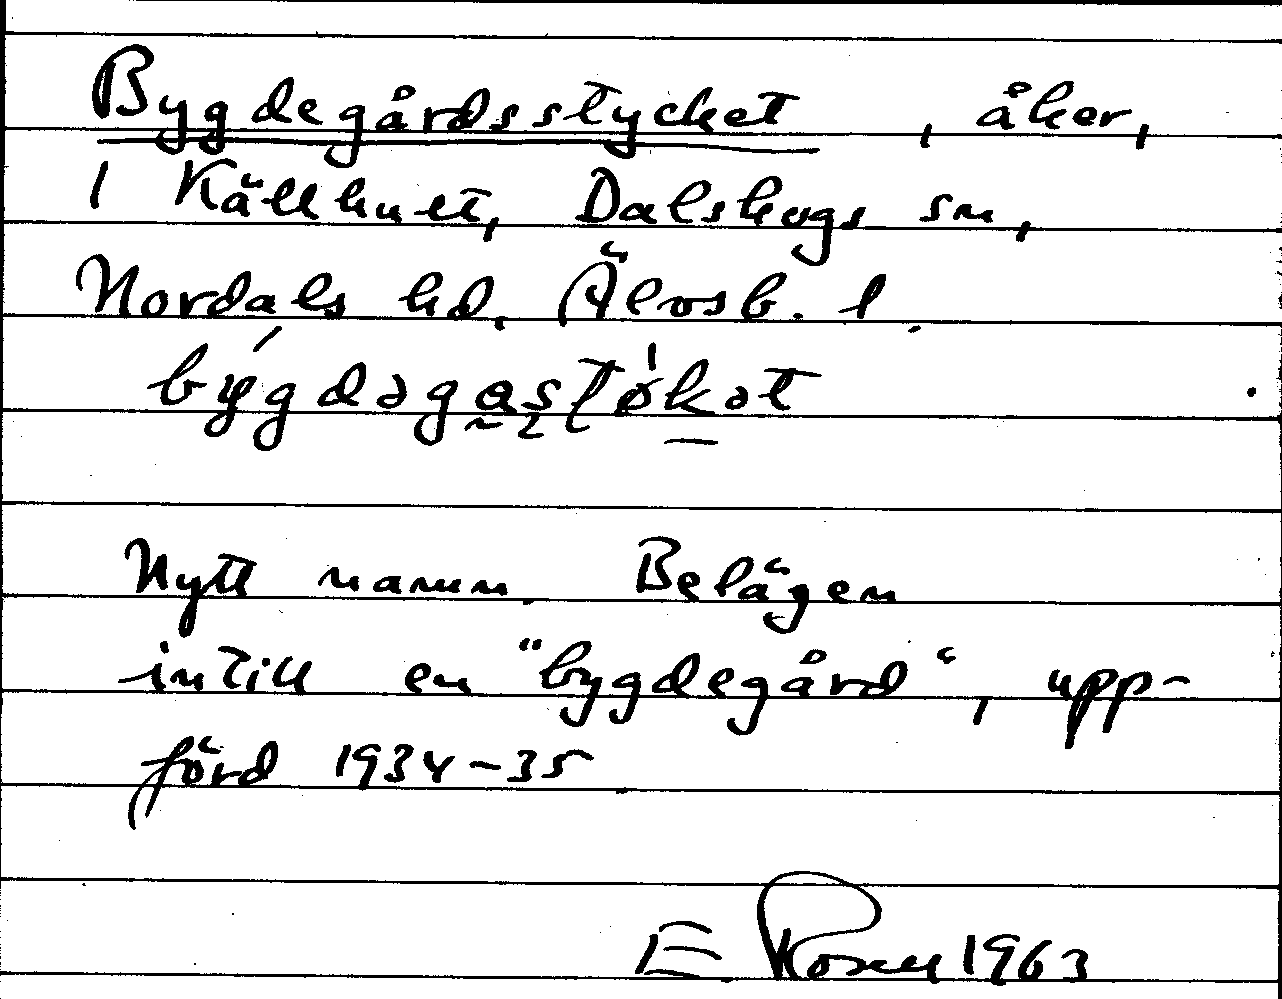 Bygdegårdsstycket, åker,
i Källhult, Dalskogs sn,
Nordals hd. Älvsb. l.
býgdəgasto̍kət
Nytt namn. Belägen
intill en "bygdegård", upp-
förd 1934-35.
E. Rosell 1963